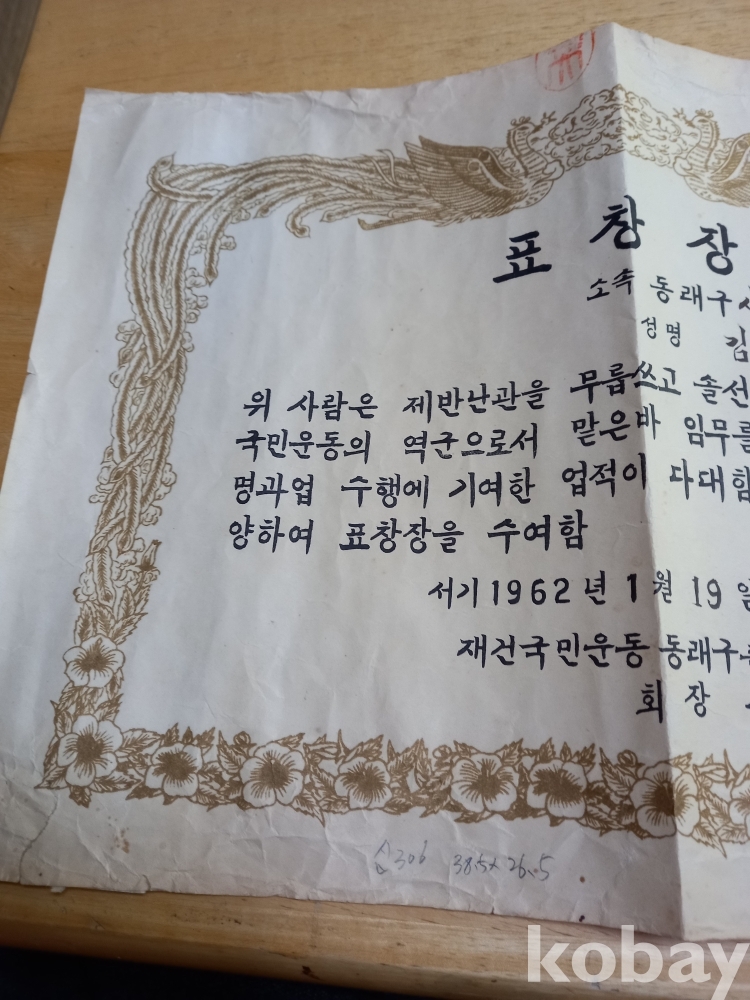 표창장
소속 동래구
성명 김
위 사람은 제반난관을 무릅쓰고 솔선
국민운동의 역군으로서 맡은바 임무를
명과업 수행에 기여한 업적이 다대함
양하여 표창장을 수여함
서기 1962년 1월 19일
재건국민운동 동래구
회장
306 38.5x26.5
kobay